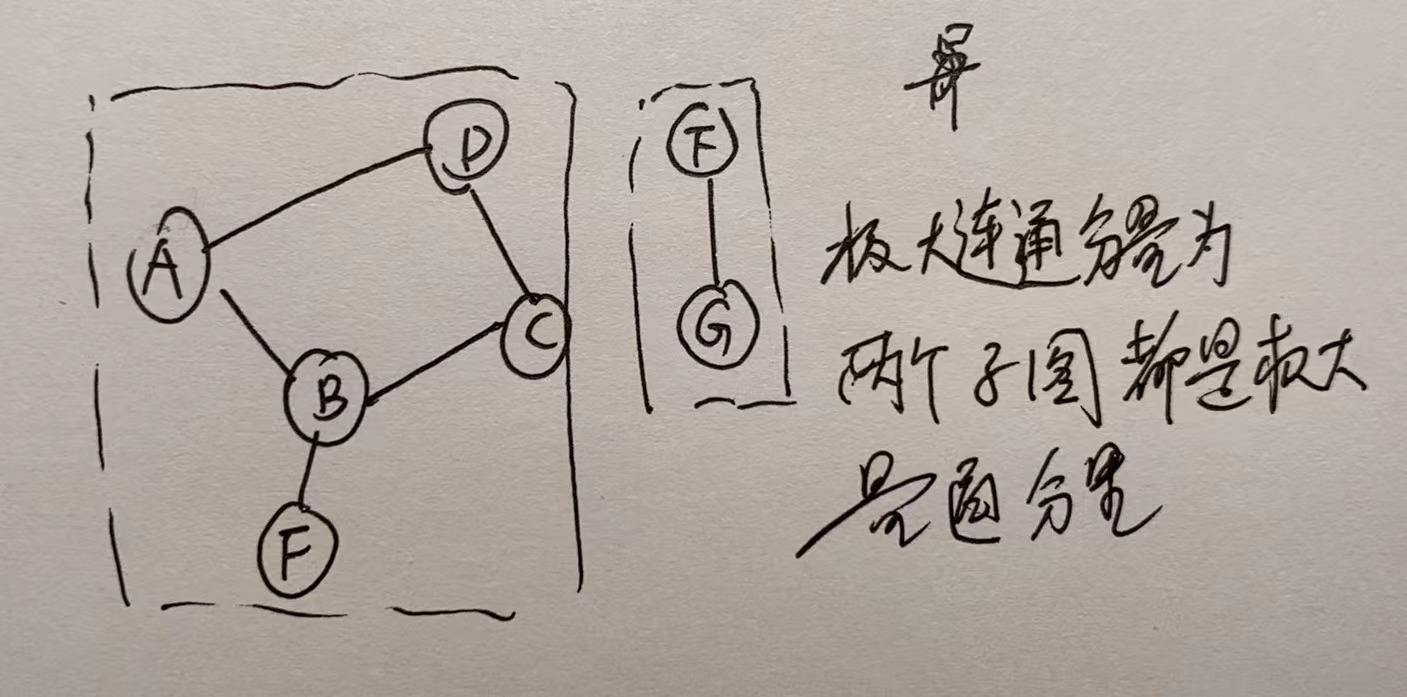 D
A
B
C
F
F
G
极大连通分量为
两个子图都是极大
分量